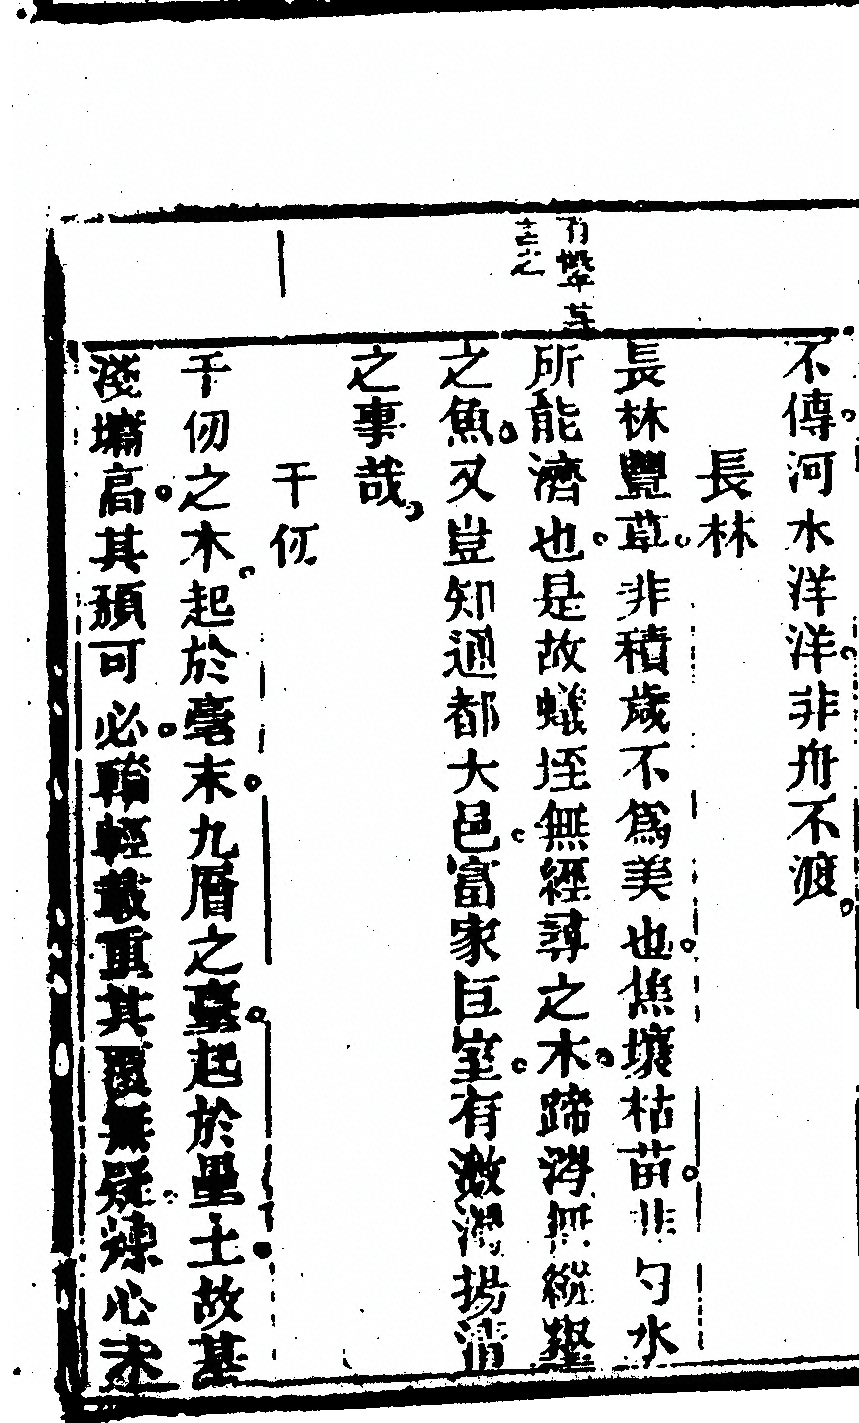 不傳。河水洋洋。非舟不渡。
長林
長林豐草。非積歲不爲美也。燋壤枯苗。非勺水
所能濟也。是故蟻垤無經尋之木。蹄涔無縱壑
之魚。又豈知通都大邑。富家巨室。有激濁揚清
之事哉。
千仞
千仞之木。起於毫末。九層之臺。起於壘土。故基
淺墉高。其頹可必。輕載重其覆無疑。煉心未